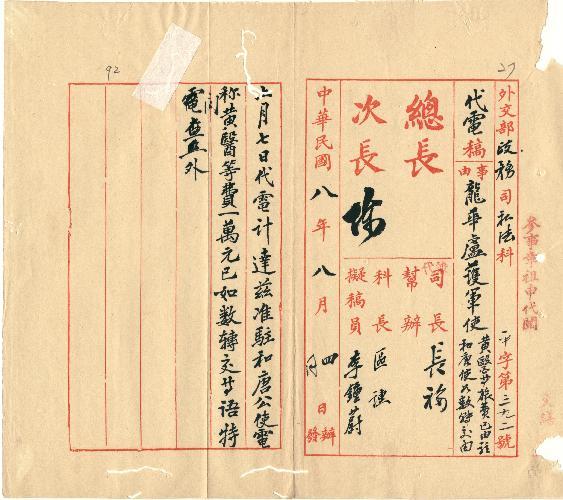 27
外交部政務司私法科
字第三九二號
參事章祖申代閱
代電稿
事由
龍華盧護軍使
黃醫等旅費已由駐
和唐使如數轉交由
總長
次長
司長 長福
幫辦
科長 區諶
擬稿員 李鍾蔚
中華民國八年八月四日
辦
發
92
七月七日代電計達茲准駐和唐公使電
称黃醫等費一萬元已如数轉交等語特
電查照外